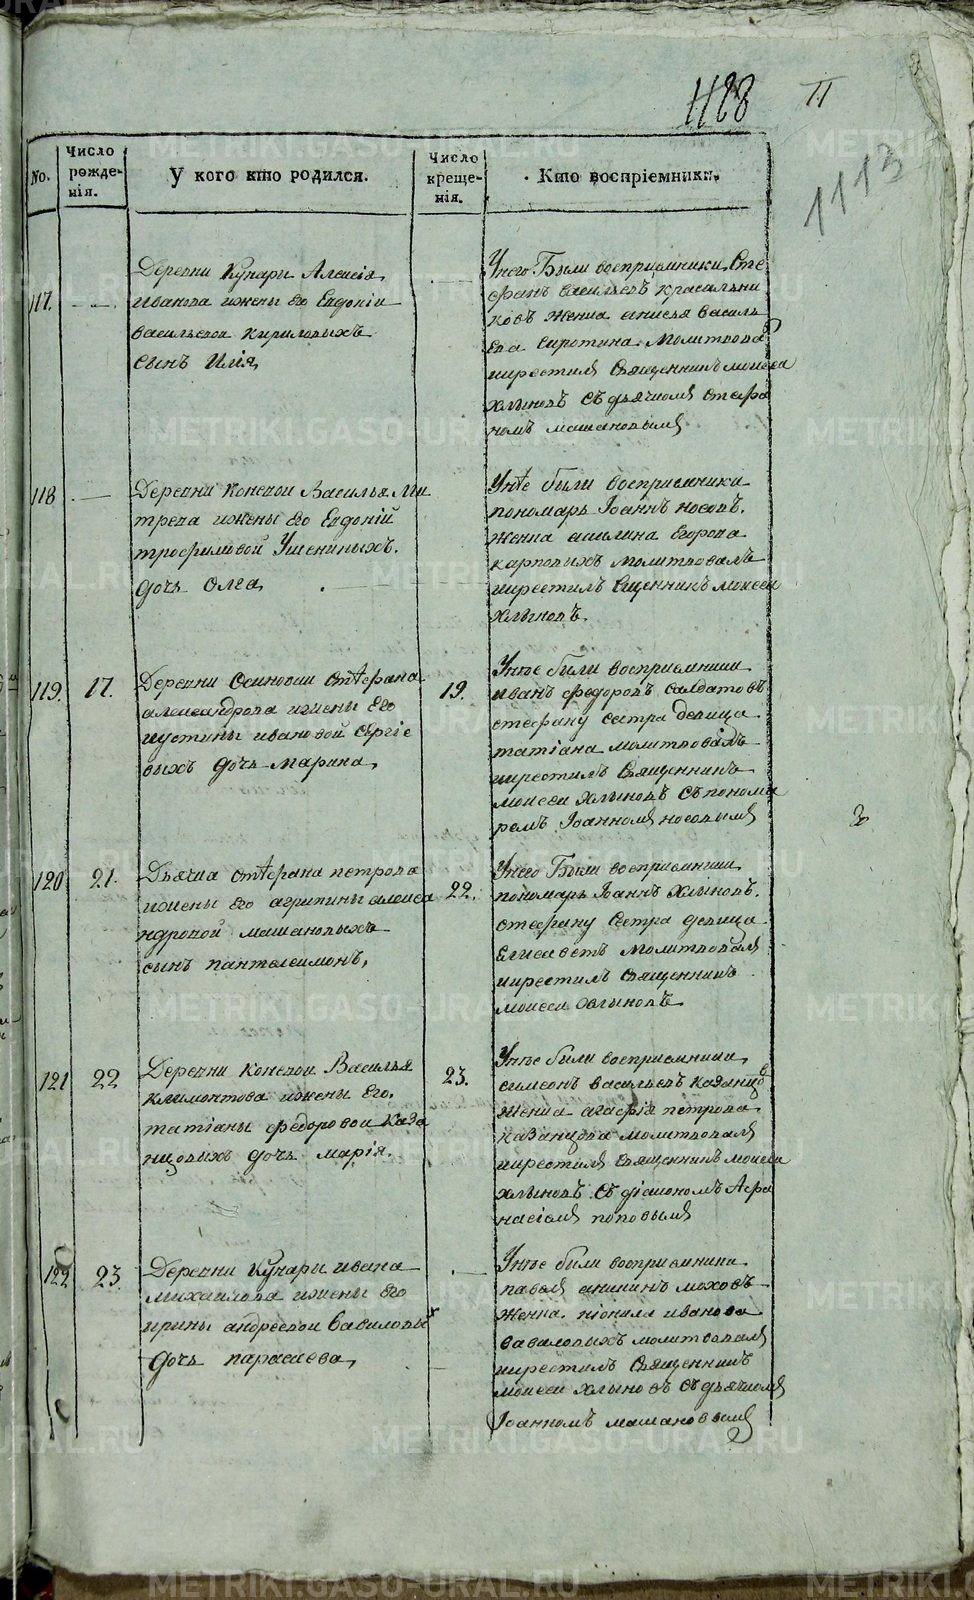 1128
11
1113
No.
Число рожде-нія.
У кого кто родился.
Число креще-нія.
Кто воспріемники.
117.
Деревни Кунари Алексія
Иванова ижены Его Евдокіи
васильевои кириловыхъ
сынъ Илія
Унего Были восприемники Сте
фанъ васильевъ красильни
ковъ женка анисья василь
Ева сиротина молитвова
икрестилъ Священникъ моисеа
хлыновъ съ дьячкомъ стефа
номъ машановымъ
118
Деревни Коневои Василья Ми
трева ижены Его Евдокій
трофимовой Ушениныхъ.
дочь олга
Унѣе были восприемники
пономарь Іоаннъ носовъ.
женка акилина Егорова
карповыхъ молитвовалъ
икрестилъ Сщенникъ моисеи
хлыновъ
119.
17.
Деревни Осиновки стѣфана
александрова ижены Его
иустины ивановой сѣргіе
выхъ дочь марина,
19.
Унѣе были восприемники
иванъ федоровъ салдатовъ
стефану сестра девица
татіана молитвовалъ
икрестилъ Священникъ
моисеи хлыновъ съ понома
ремъ Іоанномъ носовымъ
120
21.
Дьячка стѣфана петрова
ижены его агрипины алекса
ндровой машановыхъ
сынъ пантелеимонъ,
22.
Унего Были восприемники
пономарь Іоаннъ хлыновъ.
стефану Сестра девица
Елисаветъ молитвовалъ
икрестилъ Священникъ
моисеи хлыновъ
121
22
Деревни Коневои Василья
климонтова ижены Его.
татіаны федоровои Каза
нцовыхъ дочь марія.
23.
Унѣе были восприемники
симеонъ васильевъ казанцов
женка агафія петрова
казанцова молитвовалъ
икрестилъ Священникъ моисеи
хлыновъ съ діакономъ Афа
насіемъ поповымъ
122
23.
Деревни Кунары ивана
михаилова ижены Его
ирины андреевои Вавиловы
х
дочь парасаева,
Унѣе были восприемники
павелъ аникинъ моховъ
женка. ніонила иванова
вавиловыхъ молитвовалъ
икрестилъ Священникъ
моисеи хлыновъ съ дьячкомъ
Іоанномъ машановымъ
METRIKI.GASO-URAL.RU